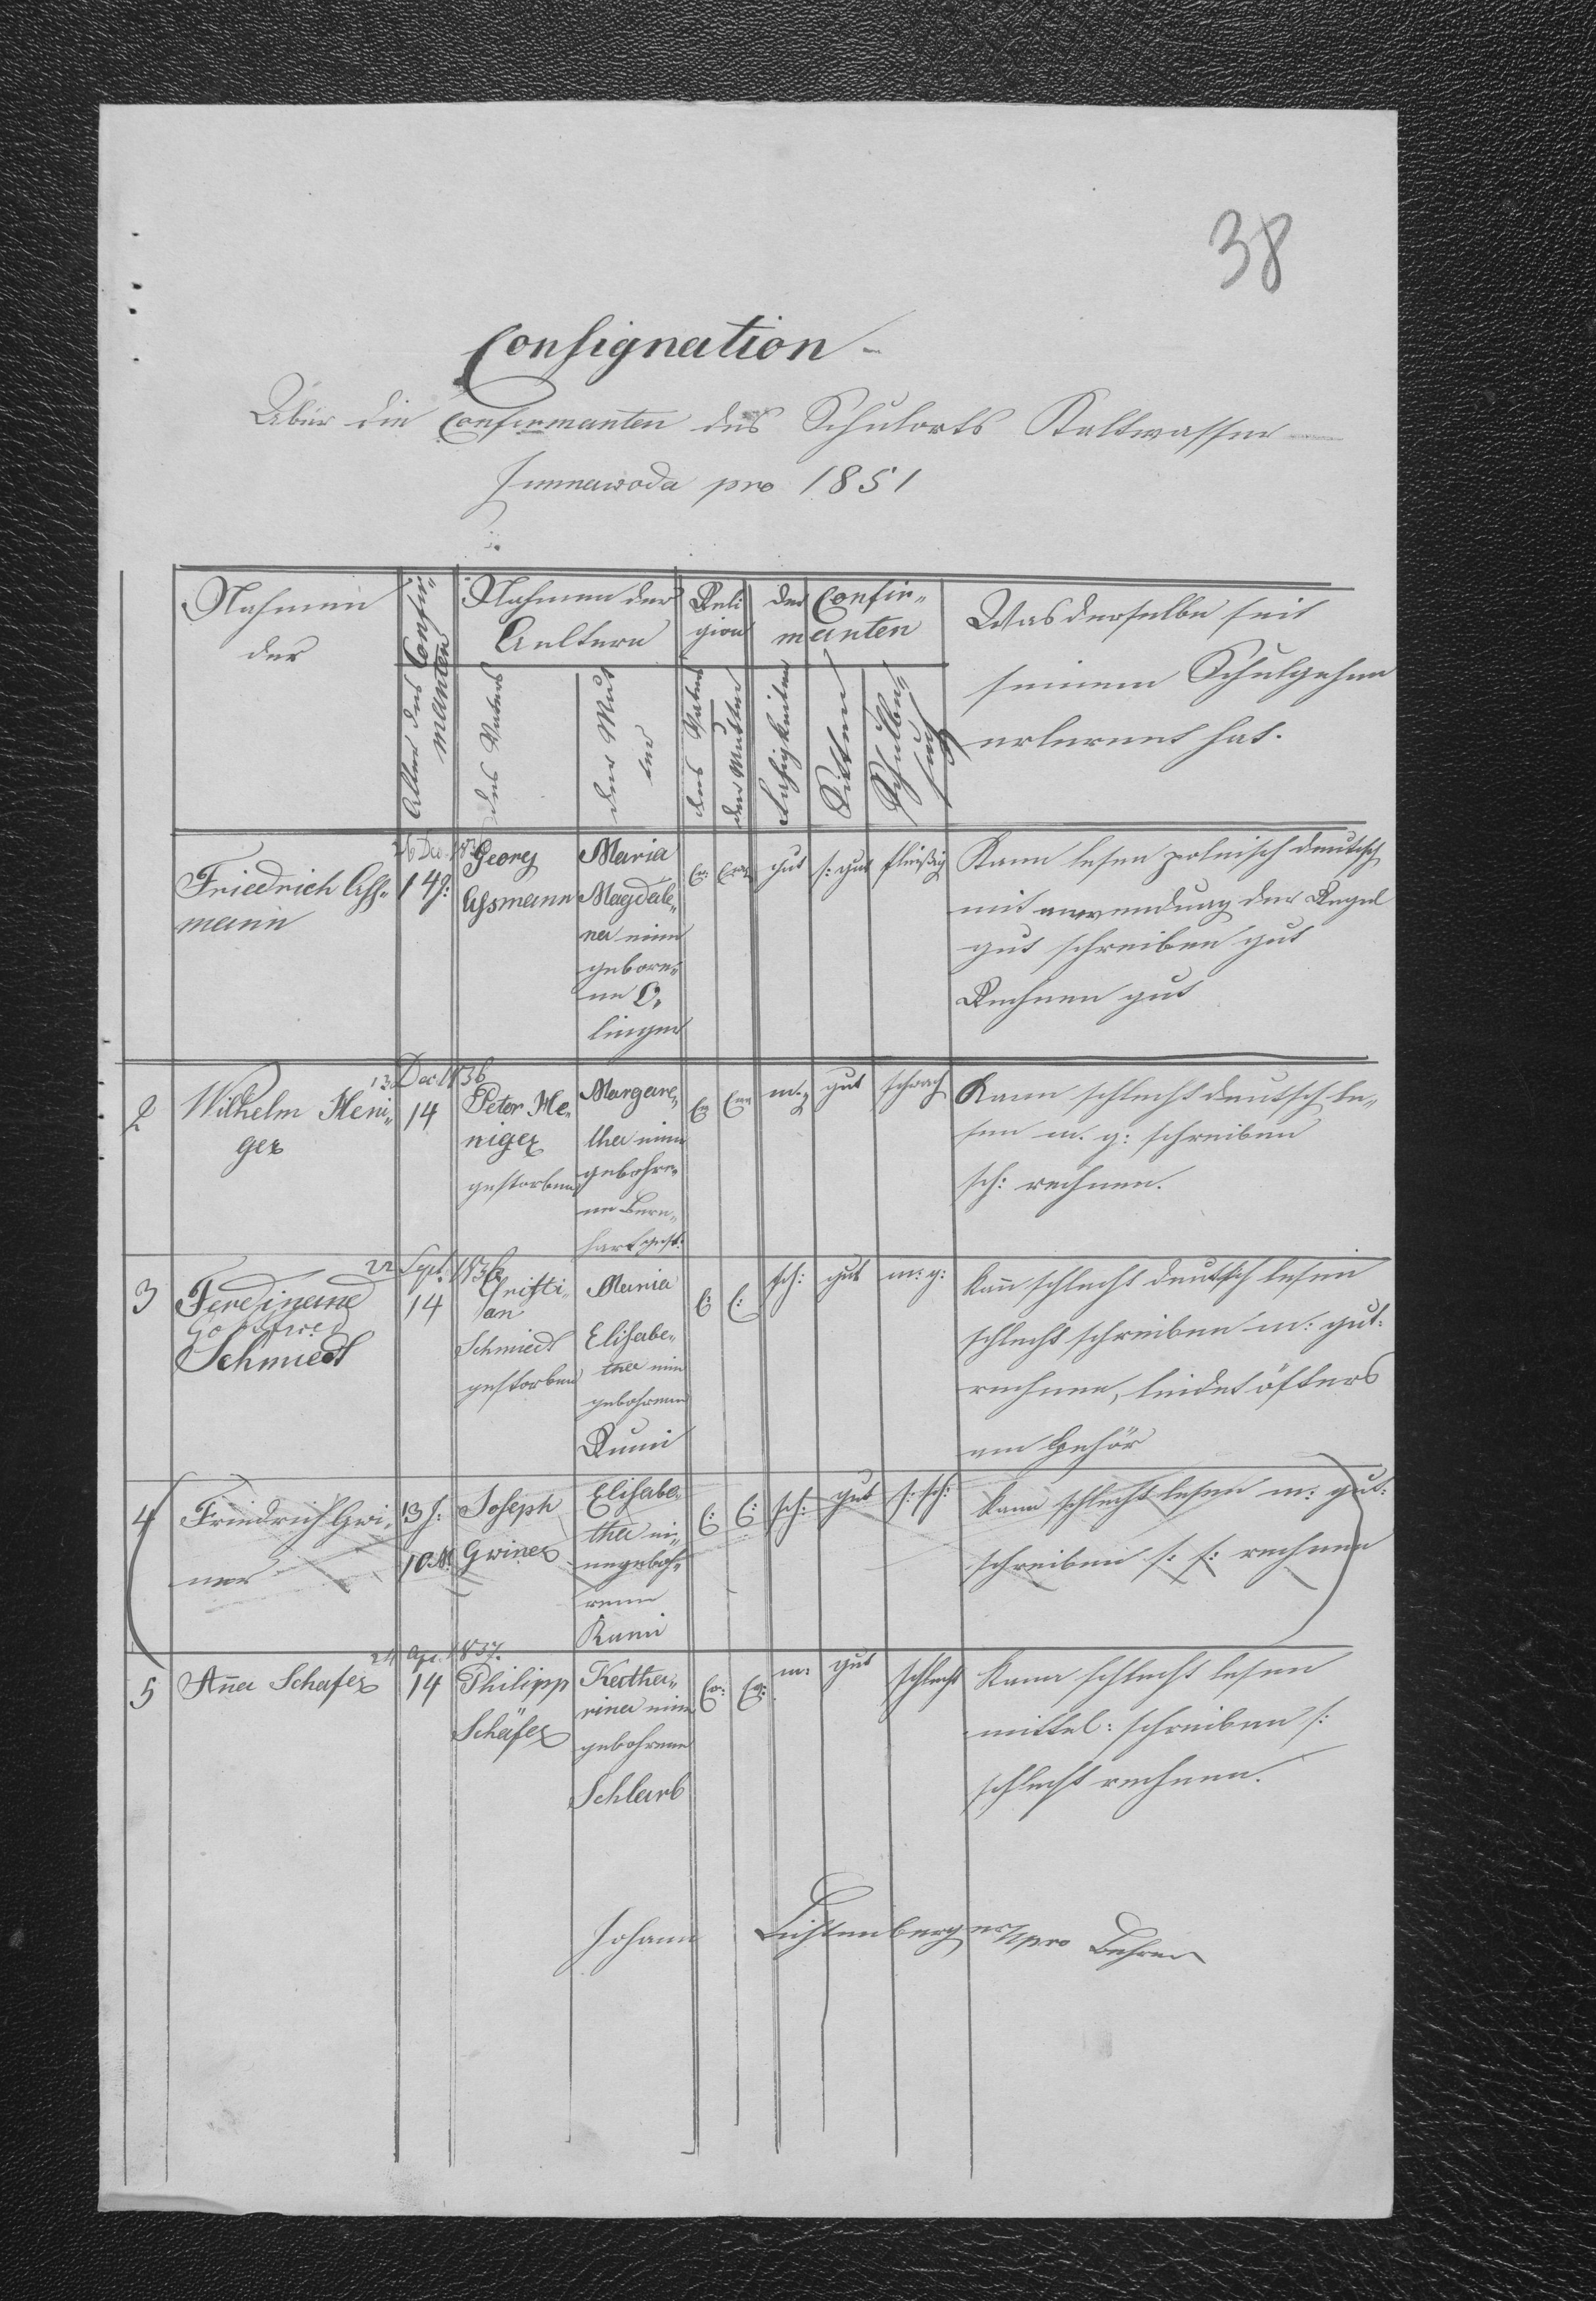 38
Consignation
Über die Confirmanten des Schulorts Kaltwasser
Zimnawoda pro 1851
Nahmen der
Alter des Confirmanten
Nahmen der Aeltern
des Vaters
der Mutter
Religion
des Vaters
der Mutter
der Confirmanten
Fähigkeiten
Sitten
Schulbesuch
Was derselbe seit
seinem Schulgehen
erlernet hat.
26 Dec. 1836
Friedrich Assmann
14 J:
Georg Assmann
Maria
Magdale„
na eine
gebore„
ne O„
linger
gut
s: gut
fleißig
Kann lesen polnisch deutsch
mit anwendung der Regel
gut schreiben gut
Rechnen gut
13 Dec 1836
2
Wilhelm Heni„
ger
14
Peter He„
niger
gestorben
Margare„
tha eine
gebohre„
ne Bern„
hart gest:
m. g
gut
schwach
Kann schlecht deutsch le„
sen m. g: schreiben
sch: rechnen.
22 Sept. 1836
3
Ferdinand
Schmiedt
14
Christi„
an
Schmiedt
gestorben
Maria
Elisabe„
tha eine
gebohrene
E: E:
sch:
gut
m: g:
kan̄ schlecht deutsch lesen
schlecht schreiben m: gut:
rechnen, leidet öfters
am Gehör
4
Friedrich Gwi„
ner
13 J:
10 M:
Joseph
Gwiner
Elisabe„
tha ei„
ne geboh„
rene
E: E:
sch:
gut
s: sch:
kann schlecht lesen m: gut:
schreiben s: s: rechnen
24 Apr. 1837.
5
An̄a Schafer
14
Philipp
Schäfer
Katha„
rina eine
gebohrene
Schlarb
m:
gut
schlecht
Kann schlecht lesen
mittel: schreiben s:
schlecht rechnen.
Johann Lichtenberger m/pro Lehrer